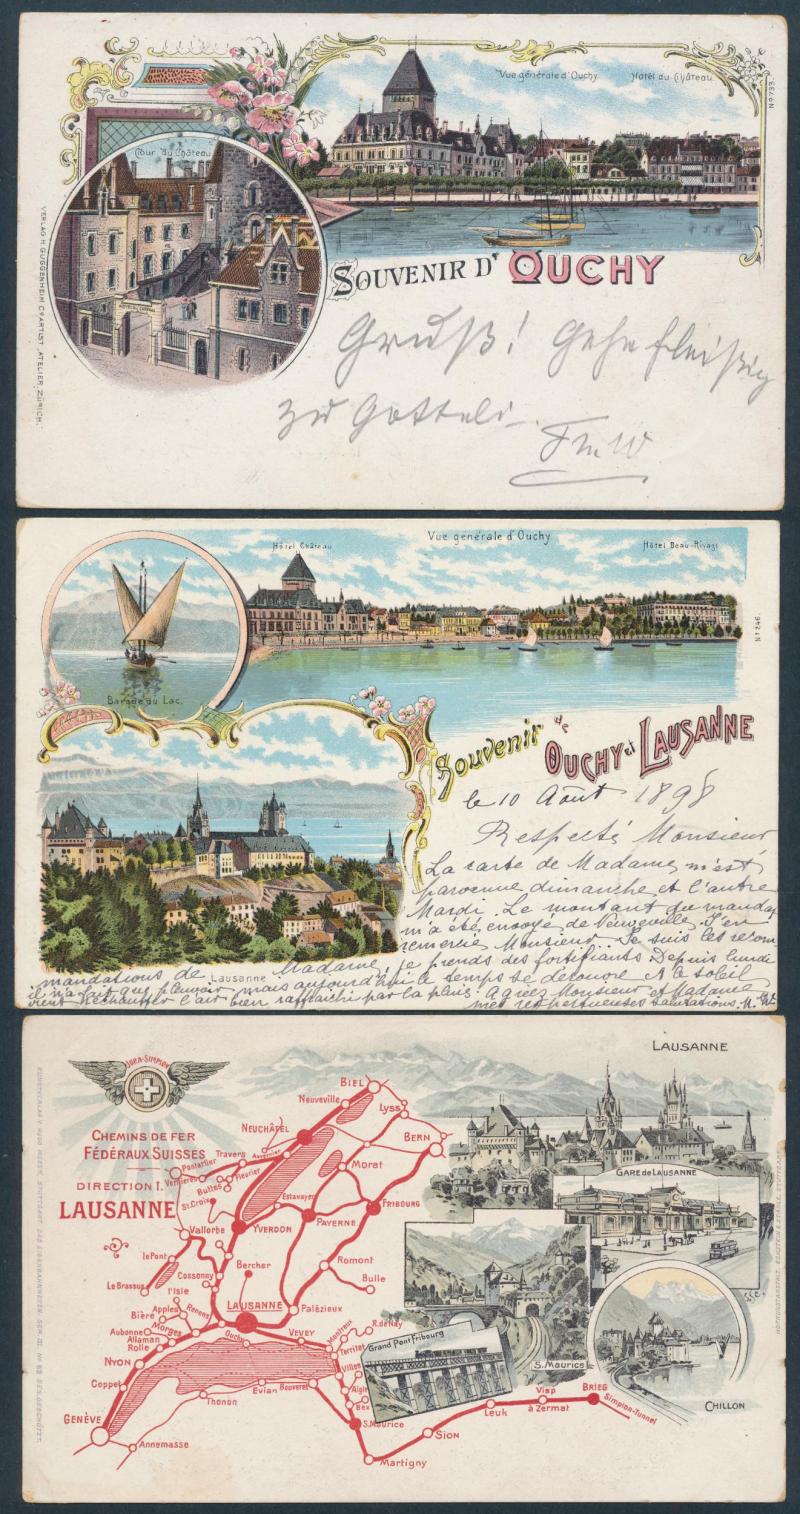 Vue générale d'Ouchy
Hôtel du Château
No 733
Cour du Château
SOUVENIR D' OUCHY
VERLAG H. GUGGENHEIM & Co ARTIST. ATELIER, ZÜRICH.
Gruß! Gehe fleißig
zu Gotteli
Hôtel Château
Vue générale d'Ouchy
Hôtel Beau-Rivage
Barque du Lac.
Souvenir de
OUCHY et LAUSANNE
le 10 Août 1898
Respecté Monsieur
La carte de Madame m'est
parvenue dimanche et l'autre
Mardi. Le montant du mandat
m'a été envoyé de Neuveville. J'en
remercie Monsieur. Je suis les recom
mandations de Madame, je prends des fortifiants Depuis lundi
Lausanne
il n'a fait que pleuvoir, mais aujourd'hui le temps se découvre et le soleil
vient réchauffer l'air bien raffraichi par la pluie. Agréez Monsieur et Madame
mes respectueuses salutations.
JURA-SIMPLON
CHEMINS DE FER
FÉDÉRAUX SUISSES
DIRECTION I.
LAUSANNE
LAUSANNE
GARE de LAUSANNE
S. Maurice
Grand Pont Fribourg
CHILLON
BIEL
Neuveville
Lyss
NEUCHÂTEL
BERN
Travers
Auvernier
Pontarlier
Verrières
Fleurier
Buttes
Morat
St. Croix
Estavayer
FRIBOURG
YVERDON
PAYERNE
Vallorbe
le Pont
Romont
Cossonay
Bercher
Le Brassus
l'Isle
Bulle
Apples
Bière
Renens
LAUSANNE
Palézieux
Morges
Aubonne
Allaman
Rolle
Ouchy
VEVEY
Montreux
R. de Nay
Territet
NYON
Villen.
Coppet
Evian
Bouveret
Aigle
Thonon
Bex
GENÈVE
S. Maurice
Annemasse
Martigny
Sion
Leuk
Visp
à Zermat
BRIEG
Simplon-Tunnel